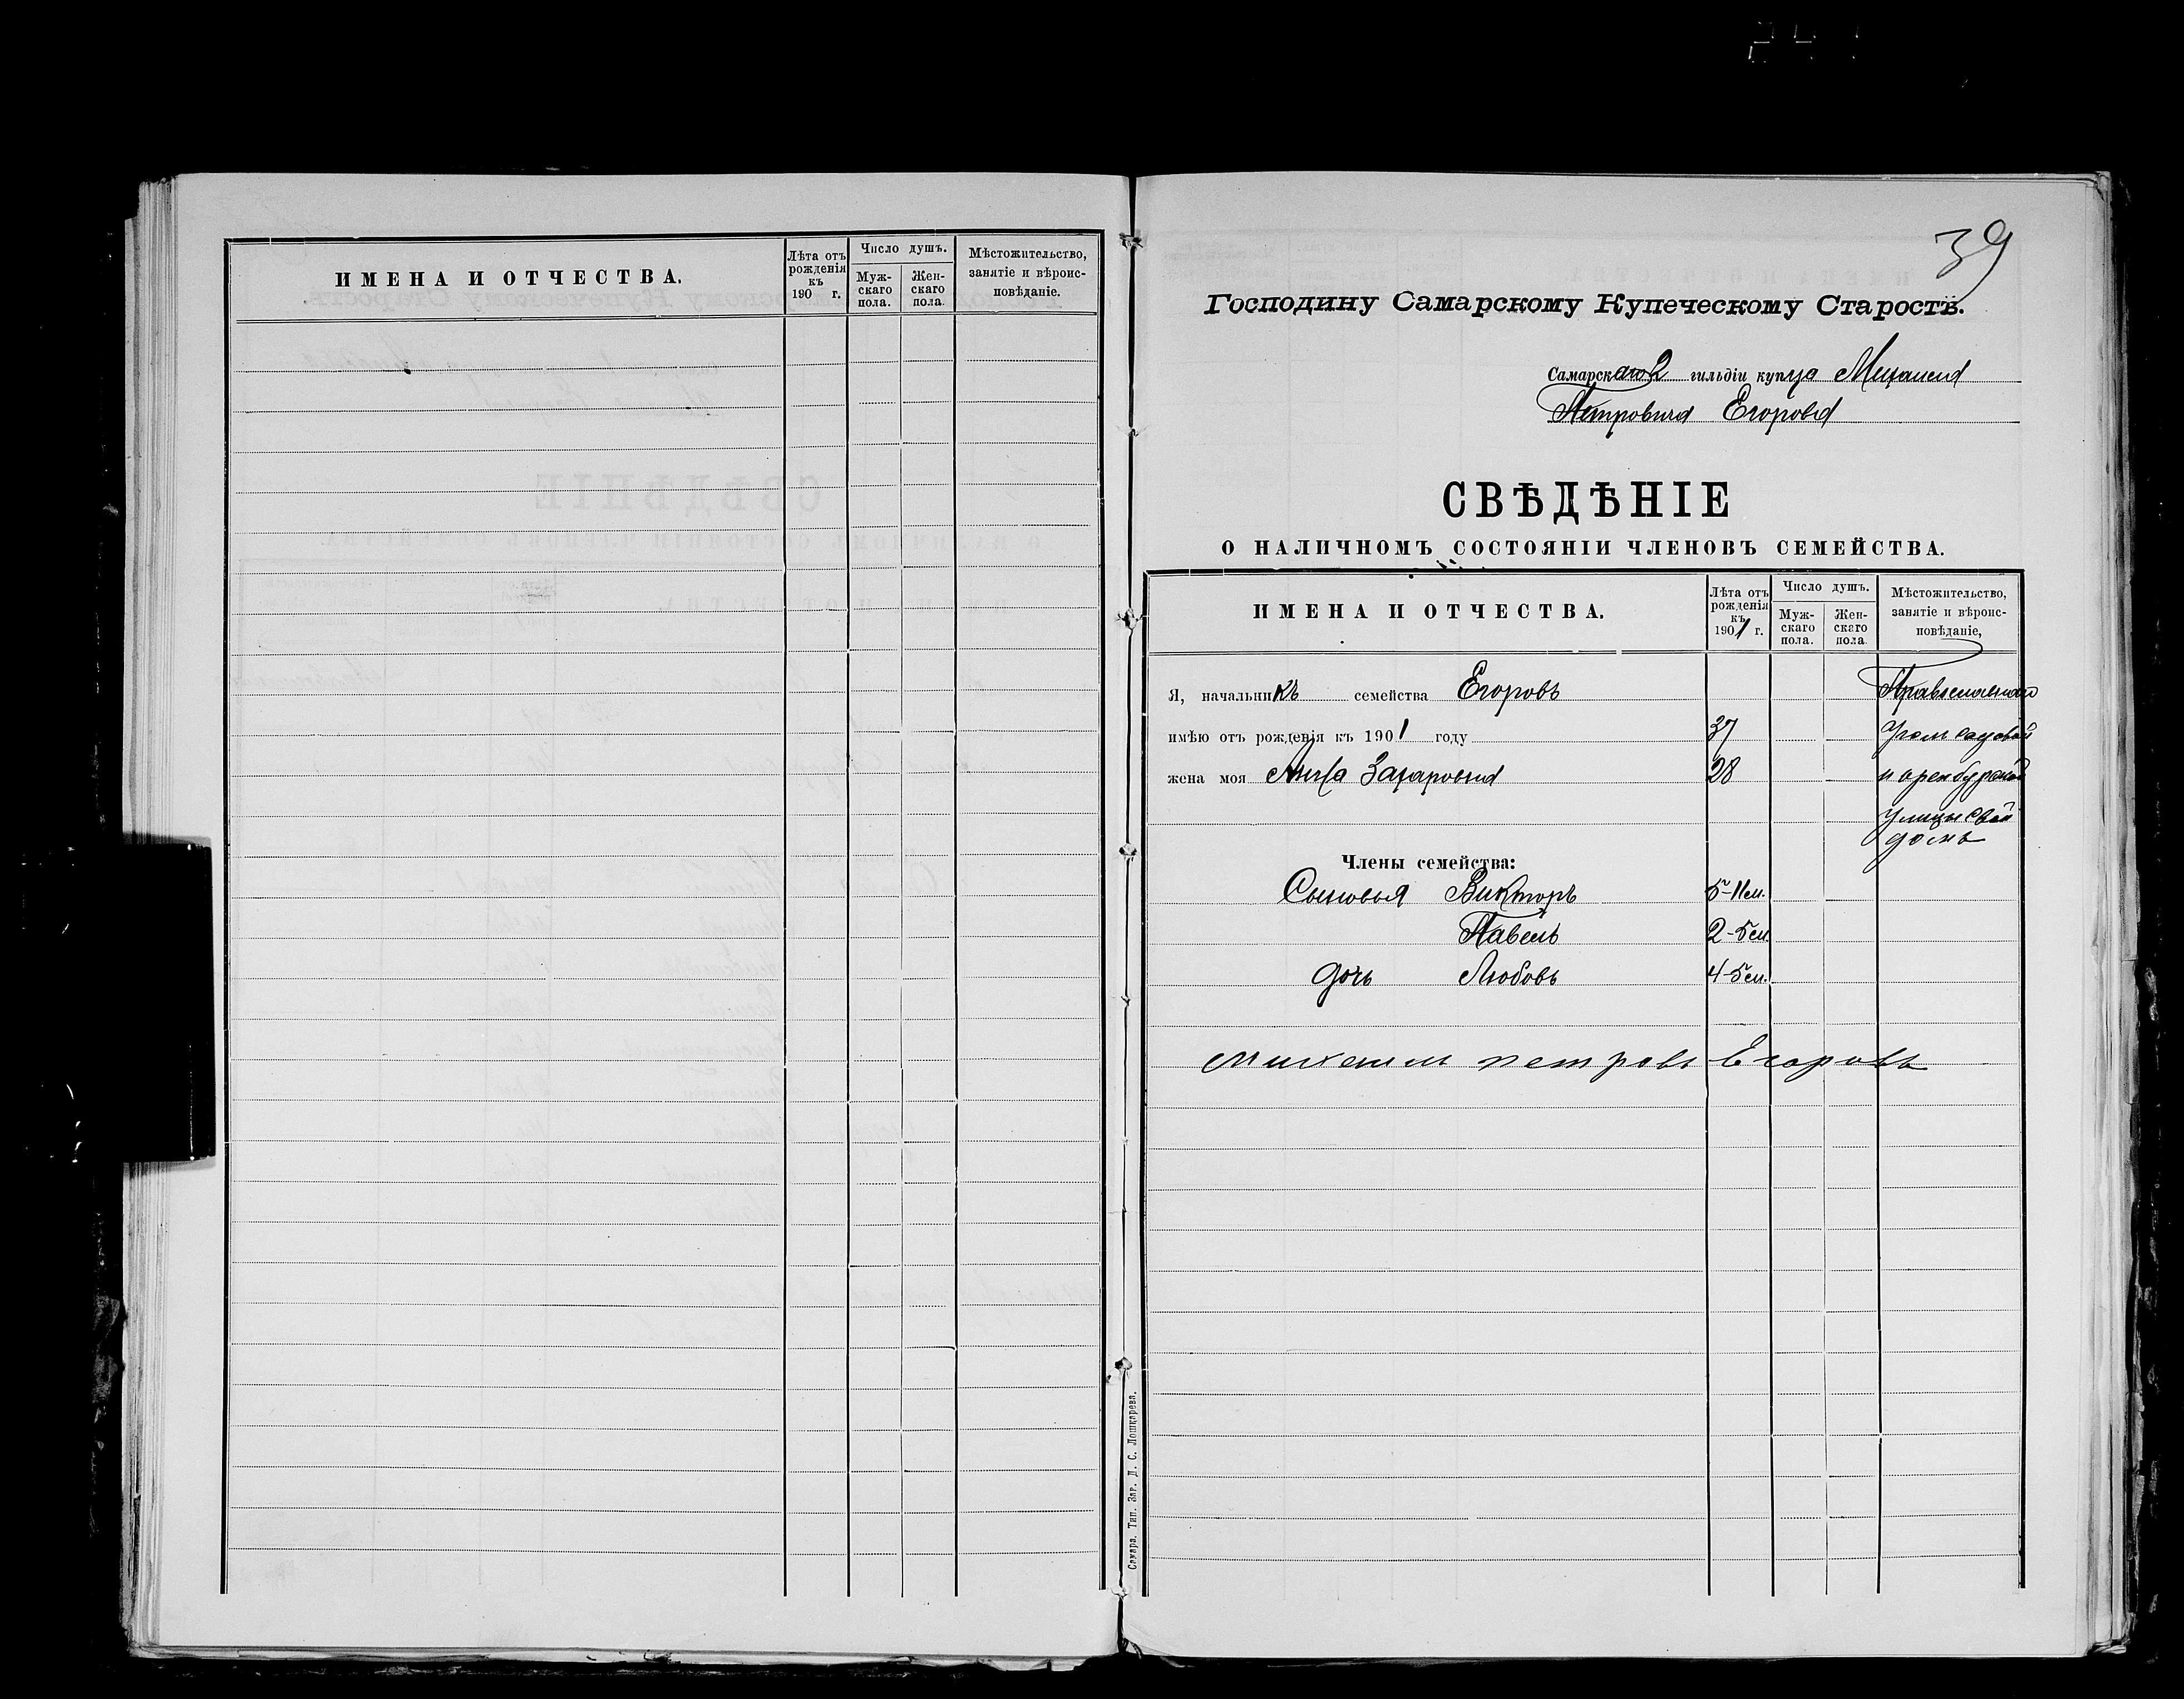 ИМЕНА И ОТЧЕСТВА.
Лѣта отъ рожденія къ 190 г.
Число душъ.
Мужскаго пола.
Женскаго пола.
Мѣстожительство, занятіе и вѣроисповѣданіе.
39
Господину Самарскому Купеческому Старостѣ.
Самарскаго 2 гильдіи купца Михаила
Петровича Егорова
СВѢДѢНІЕ
О НАЛИЧНОМЪ СОСТОЯНІИ ЧЛЕНОВЪ СЕМЕЙСТВА.
ИМЕНА И ОТЧЕСТВА.
Лѣта отъ рожденія къ 1901 г.
Число душъ.
Мужскаго пола.
Женскаго пола.
Мѣстожительство, занятіе и вѣроисповѣданіе,
Я, начальникъ семейства Егоровъ Православнаго
имѣю отъ рожденія къ 1901 году 37 Уголъ садовой
жена моя Анна Захаровна 28 и оренбургской
улицы свой
домъ
Члены семейства:
Сыновья Викторъ 5-11 м.
Павелъ 2-5 м.
дочь Любовь 4-5 м.
Михаилъ петровъ Егоровъ
Самара. Тип. Заг. Д. С. Лошкарева.